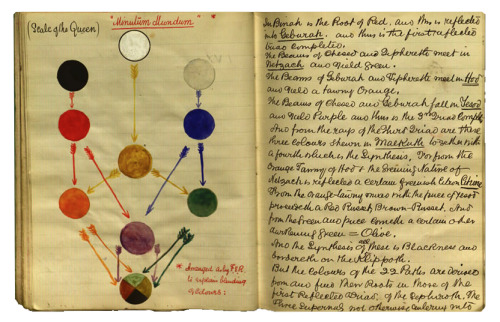 (Scale of the Queen)
"Minutum Mundum"
* Arranged as by F.E.R.
to explain blending
of Colours:
In Binah is the Root of Red, and this is reflected
into Geburah. and thus is the first reflected
triad completed.
The Beams of Chesed and Tiphereth meet in
Netzach and yield Green.
The Beams of Geburah and Tiphereth meet in Hod
and yield a tawny Orange.
The Beams of Chesed and Geburah fall in Yesod
and yield Purple and thus is the 2nd Triad Comple
And from the rays of the Third Triad are these
three colours shewn in Malkuth together with
a fourth which is the Synthesis. For from the
Orange Tawny of Hod & the Greening Nature of
Netzach is reflected a certain Greenish Citron Citrine
From the Orange-tawny mixed with the puce of Yesod
proceedeth a Red Russet, Brown-Russet. And
from the Green and puce cometh a certain other
darkening green = Olive.
And the Synthesis of these is Blackness and
bordereth on the Klippoth.
But the Colours of the 22 Paths are derived
from and find their Roots in those of the
first Reflected Triad of the Sephiroth, the
Three Supernals not otherwise entering into